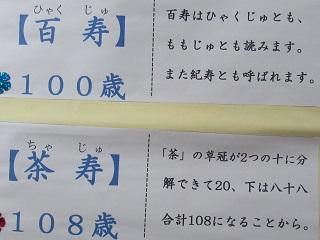 ひゃく じゅ
【百 寿】
100歳
百寿はひゃくじゅとも、
ももじゅとも読みます。
また紀寿とも呼ばれます。
ちゃ じゅ
【茶 寿】
108歳
「茶」の草冠が2つの十に分
解できて20、下は八十八
合計108になることから。